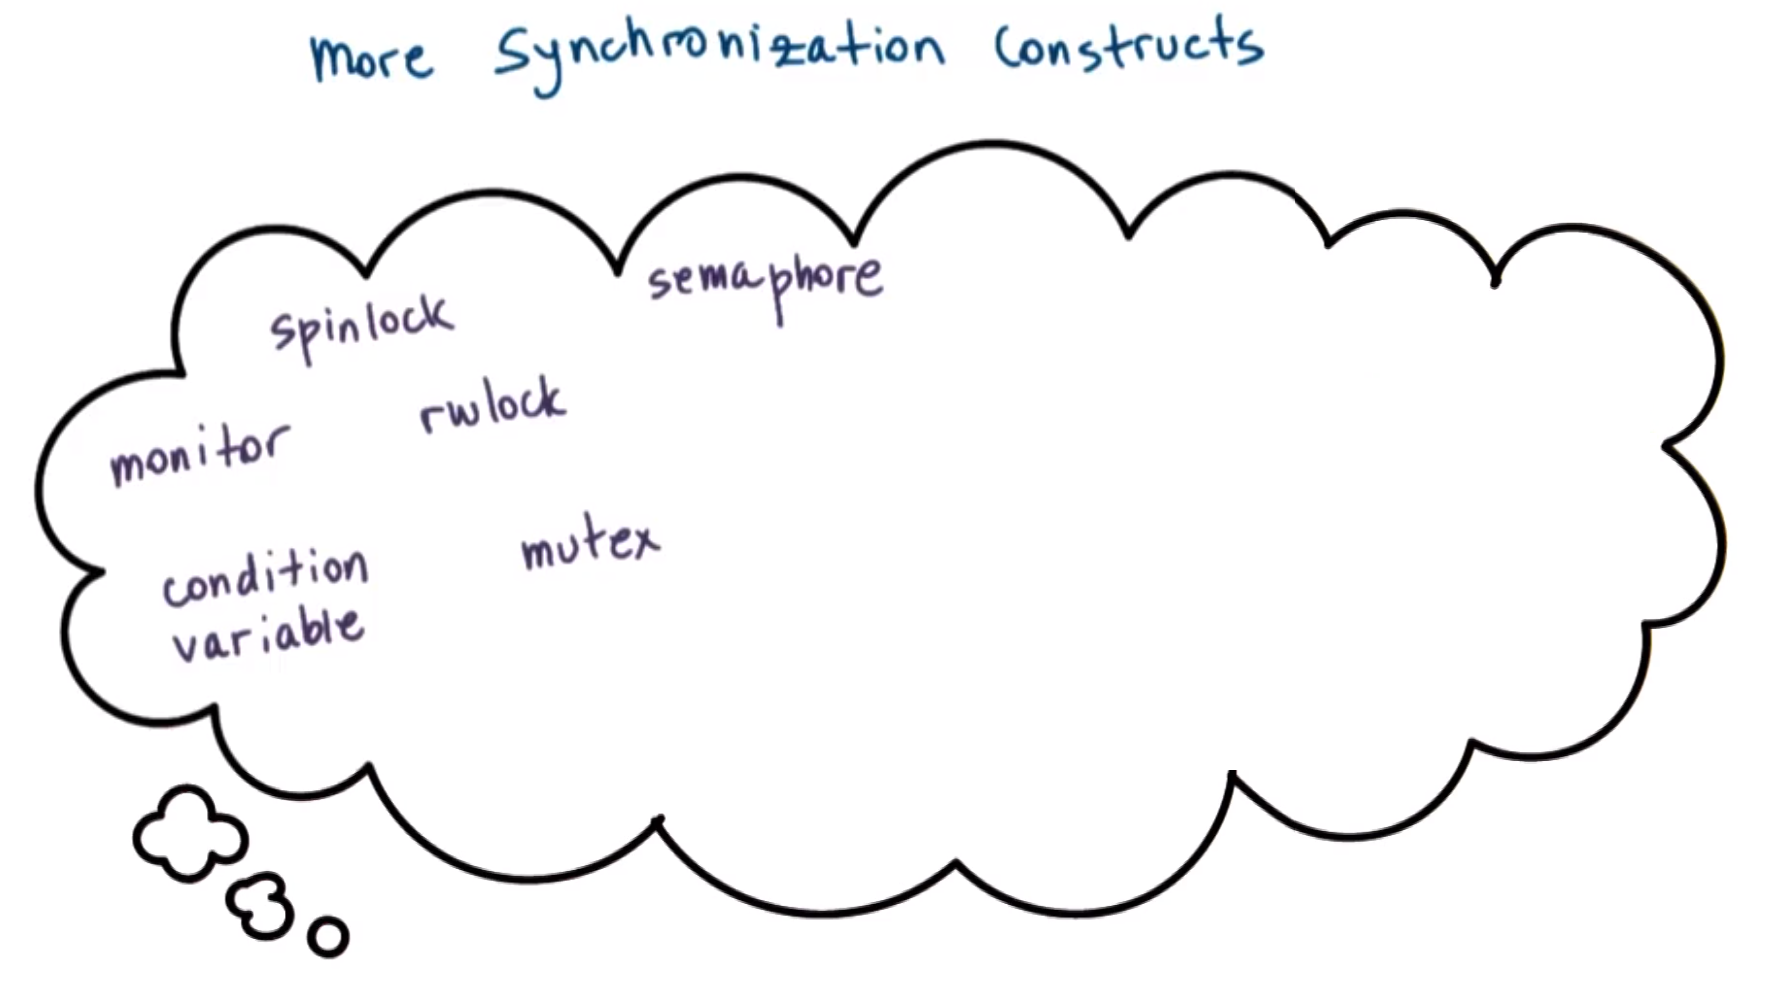 more Synchronization Constructs
semaphore
spinlock
rwlock
monitor
mutex
condition
variable